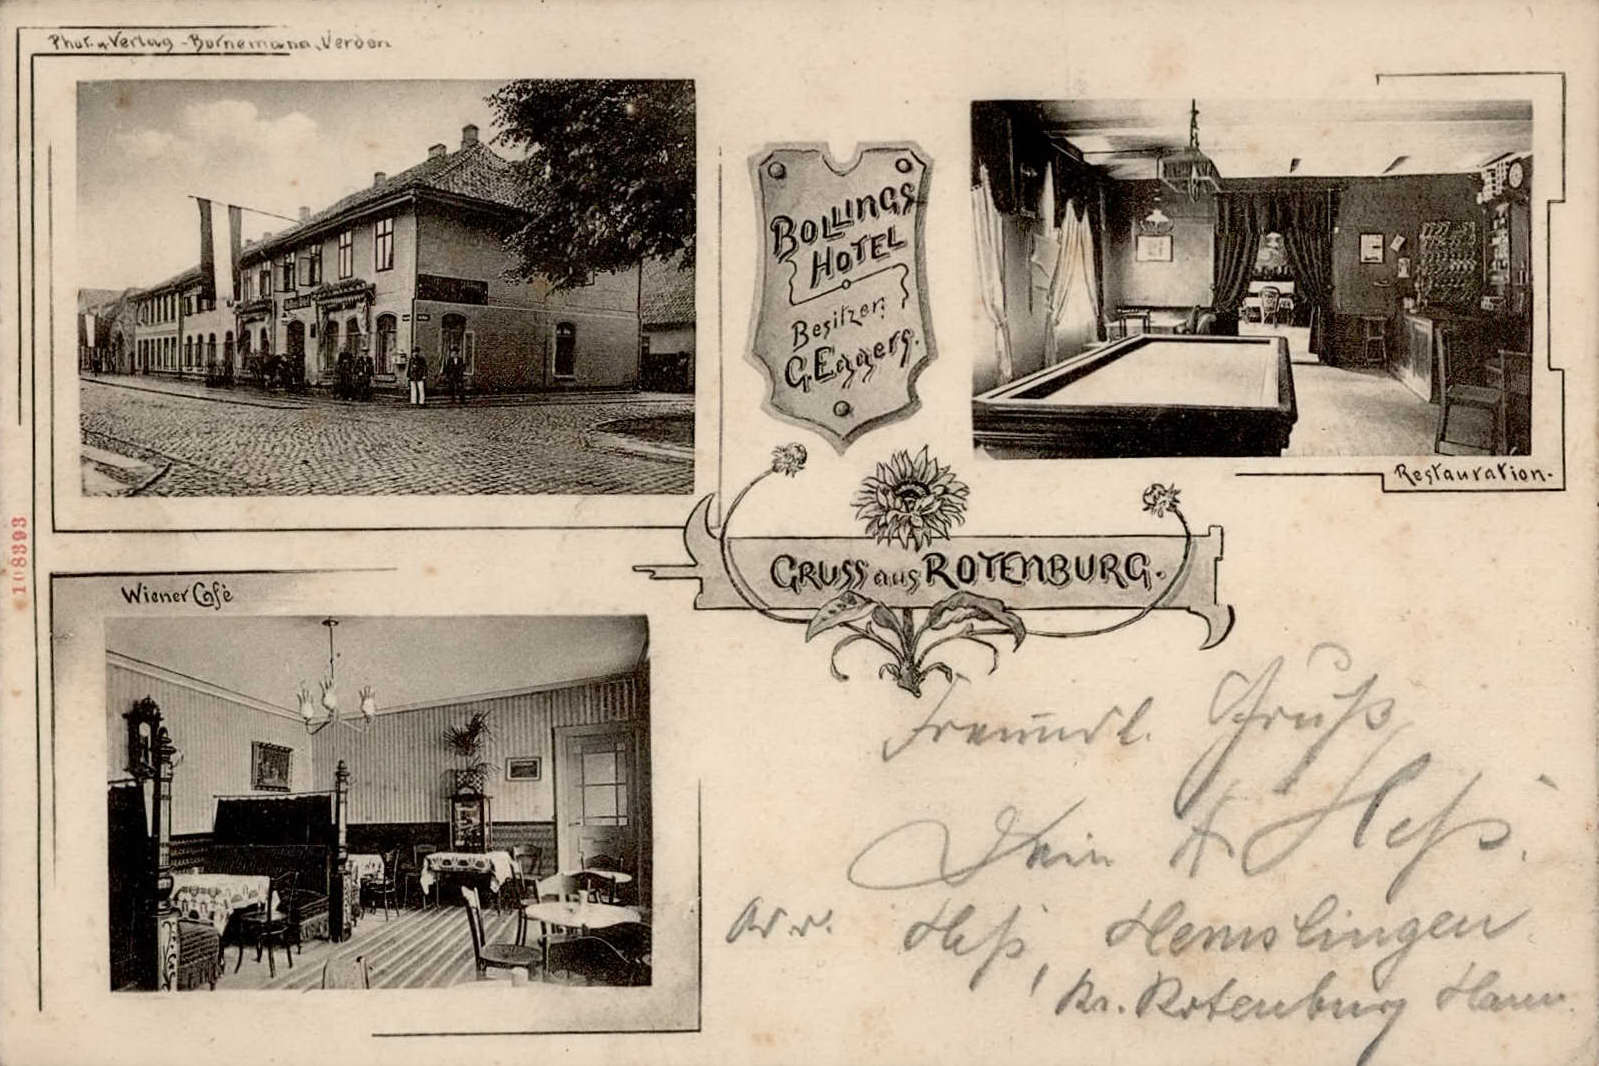 Phot. u. Verlag - Bornemann, Verden
BOLLINGS
HOTEL
Besitzer:
G. Eggers.
Restauration.
GRUSS aus ROTENBURG.
108393
Wiener Café
Freundl. Gruß
Dein A Heß.
Adr. Heß, Hemslingen
Kr. Rotenburg Hann.